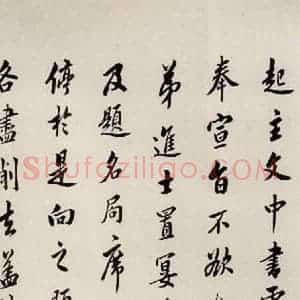 起主文中書
奉宣旨不欲
弟進士置宴
及題名局席
停於是向之
各盡削去蓋
Shufaziliao.COM